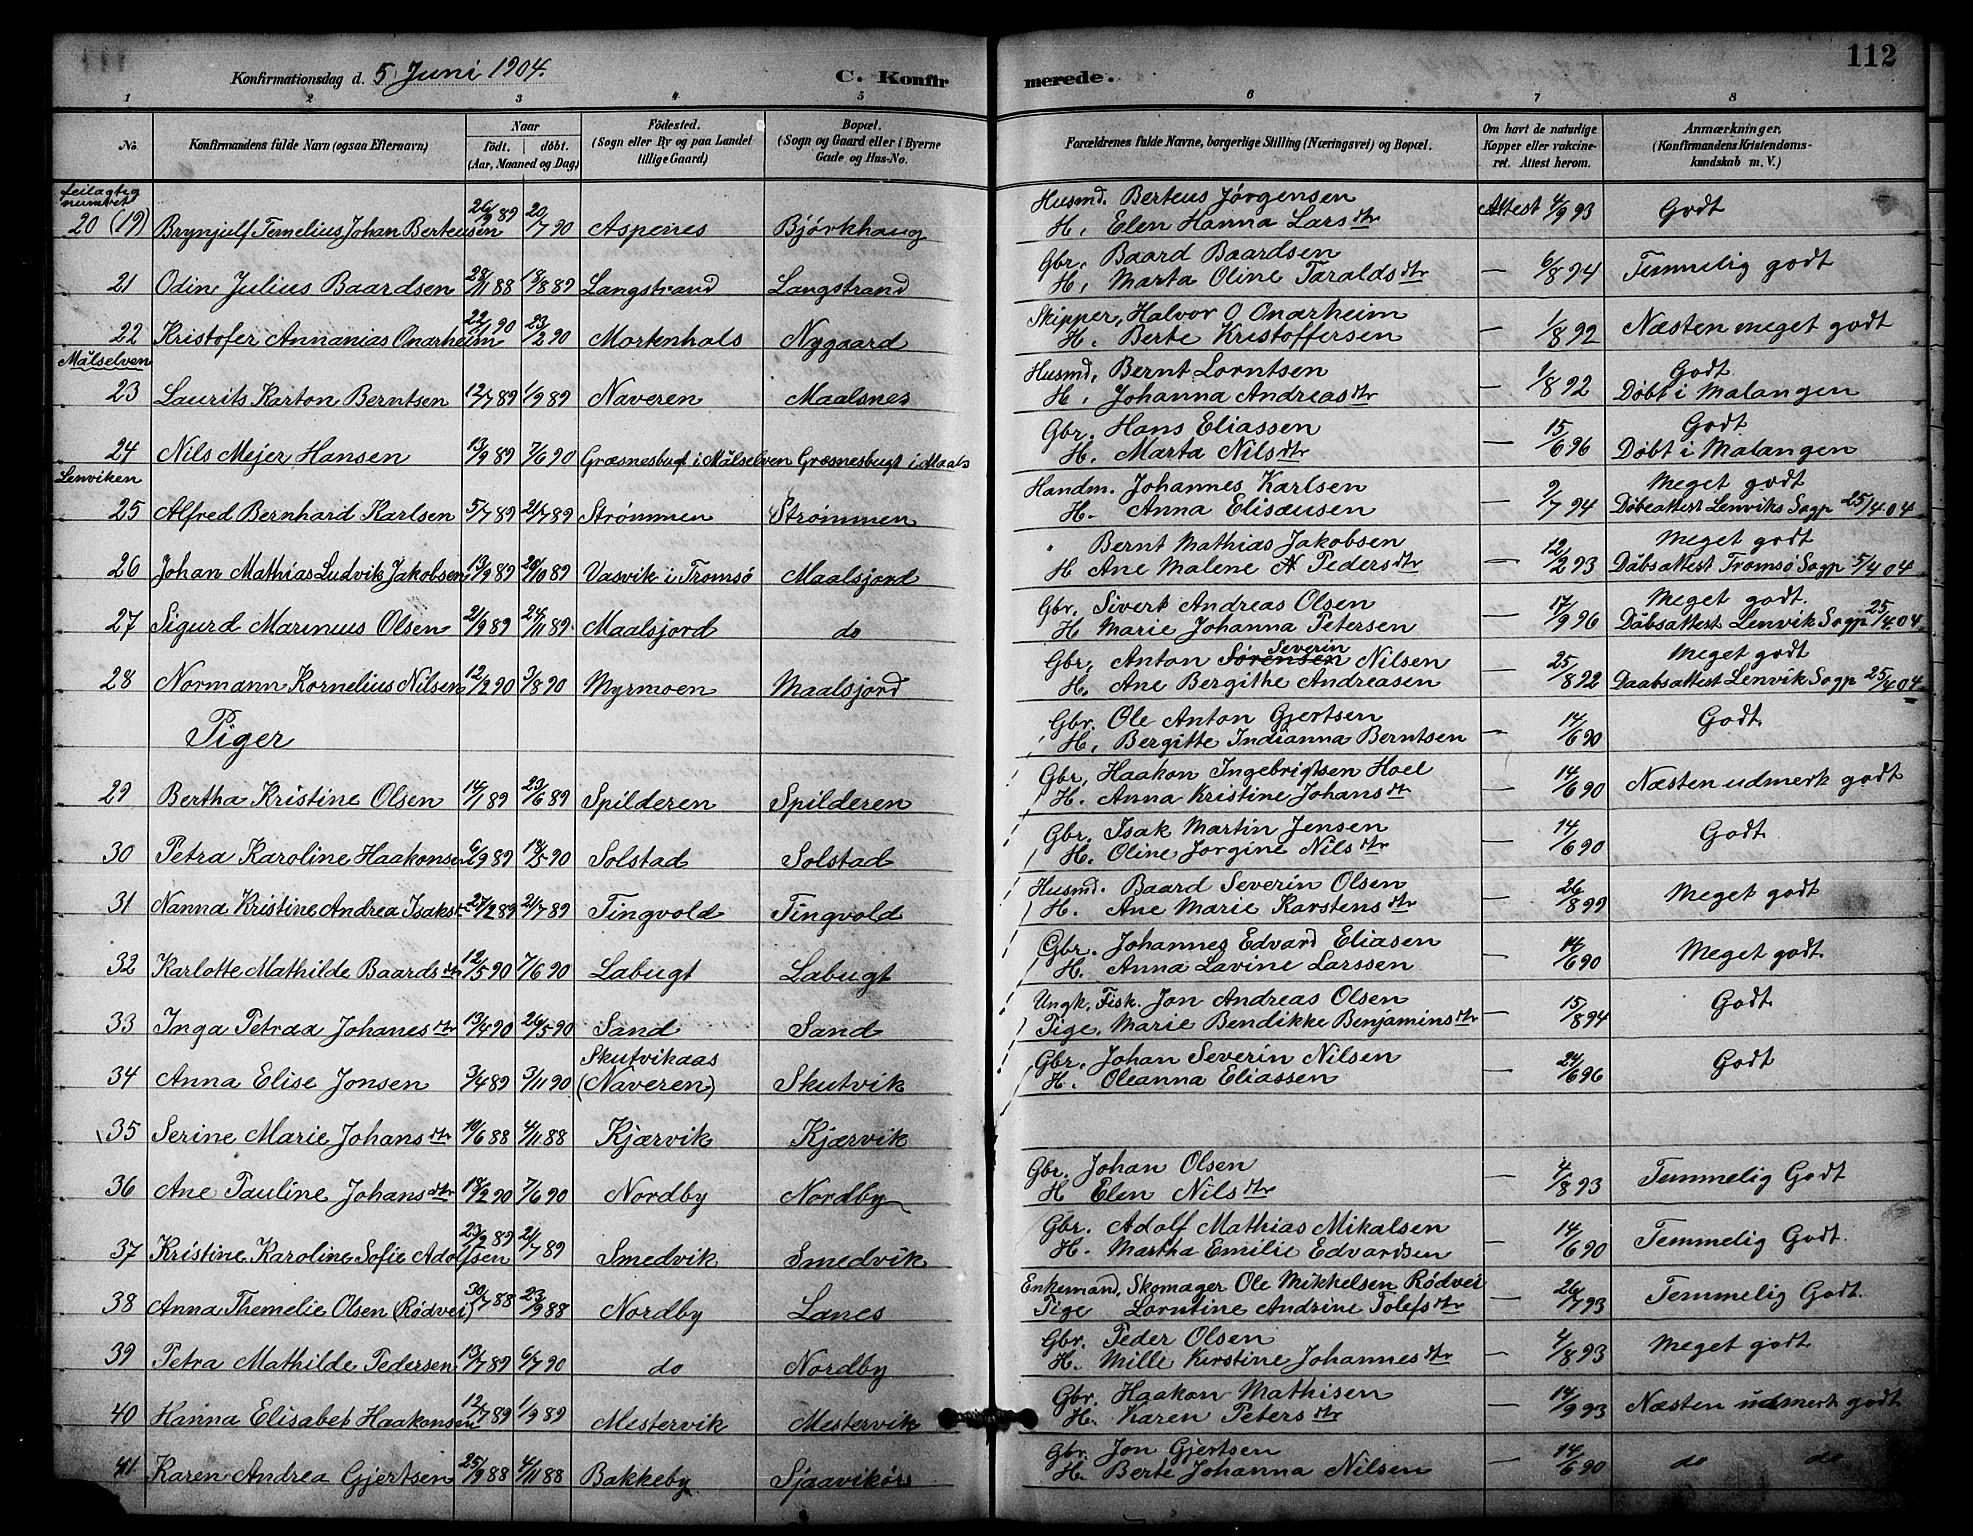 Konfirmationsdag d. 5 Juni 1904.
C. Konfir
merede.
112
1 2 3 4 5 6 7 8
No.
Konfirmandens fulde Navn (ogsaa Efternavn)
Naar
födt. döbt.
(Aar, Maaned og Dag)
Födested.
(Sogn eller By og paa Landet
tillige Gaard)
Bopæl.
(Sogn og Gaard eller i Byerne
Gade og Hus-No.
Forældrenes fulde Navne, borgerlige Stilling (Næringsvei) og Bopæl.
Om havt de naturlige
Kopper eller vakcine-
ret. Attest herom.
Anmærkninger,
(Konfirmandens Kristendoms-
kundskab m. V.)
feilagtig
numret
20 (19) Brynjulf Temelius Johan Berteusen 26/9 89 20/7 90 Aspenes Bjørkhaug
Husmd. Berteus Jørgensen
H. Elen Hanna Larsdtr
Attest 4/9 93 Godt
21 Odin Julius Baardsen 28/11 88 18/8 89 Langstrand Langstrand
Gbr. Baard Baardsen
H, Marta Oline Taraldsdtr
— 6/8 94 Temmelig godt
22 Kristofer Annanias Onarheim 22/1 90 23/2 90 Mortenhals Nygaard
Skipper, Halvor O Onarheim
H. Berte Kristoffersen
— 1/8 92 Næsten meget godt
Målselven
23 Laurits Karton Berntsen 12/7 89 1/9 89 Naveren Maalsnes
Husmd, Bernt Lorntsen
H, Johanna Andreasdtr
— 1/8 92 Godt
Døbt i Malangen
24 Nils Mejer Hansen 13/9 89 7/6 90 Græsnesbugt i Målselven Græsnesbugt i Maals
Gbr. Hans Eliassen
H. Marta Nilsdtr
— 15/6 96 Godt
Døbt i Malangen
Lenviken
25 Alfred Bernhard Karlsen 5/7 89 21/7 89 Strømmen Strømmen
Handm. Johannes Karlsen
H. Anna Elisæusen
— 9/7 94 Meget godt
Døbeattest Lenviks Sogp 25/4 04
26 Johan Mathias Ludvik Jakobsen 13/9 89 20/10 89 Vasvik i Tromsø Maalsjord
" Bernt Mathias Jakobsen
H Ane Malene Pedersdtr
— 12/2 93 Meget godt
Dåbsattest Tromsø Sogp 5/4 04
27 Sigurd Marinius Olsen 21/9 89 24/11 89 Maalsjord do
Gbr, Sivert Andreas Olsen
H Marie Johanna Petersen
— 17/9 96 Meget godt.
Dåbsattest Lenvik Sogp 25/4 04
28 Normann Kornelius Nilsen 12/2 90 3/8 90 Myrmoen Maalsjord
Severin
Gbr, Anton Sørensen Nilsen
H. Ane Bergithe Andreasen
— 25/8 92 Meget godt
Daabsattest Lenvik Sogp 25/4 04
Piger
Gbr. Ole Anton Gjertsen
H, Bergitte Indianna Berntsen
— 14/6 90 Godt
29 Bertha Kristine Olsen 14/1 89 23/6 89 Spilderen Spilderen
Gbr, Haakon Ingebrigtsen Hoel
H. Anna Kristine Johansdtr
— 14/6 90 Næsten udmerk godt
30 Petra Karoline Haakonsen 6/9 89 18/5 90 Solstad Solstad
Gbr, Isak Martin Jensen
H. Oline Jorgine Nilsdtr
— 14/6 90 Godt
31 Nanna Kristine Andrea Isaks 27/2 89 21/7 89 Tingvold Tingvold
Husmd. Baard Severin Olsen
H. Ane Marie Karstensdtr
— 26/8 99 Meget godt
32 Karlotte Mathilde Baardsdtr 12/5 90 7/6 90 Labugt Labugt
Gbr. Johannes Edvard Eliasen
H. Anna Lavine Larssen
— 14/6 90 Meget godt
33 Inga Petraa Johanesdtr 13/4 90 26/5 90 Sand Sand
Ungk. Fisk. Jon Andreas Olsen
Pige. Marie Bendikke Benjaminsdtr
— 15/8 94 Godt
34 Anna Elise Jonsen 3/4 89 3/11 90 Skutvikaas
(Naveren) Skutvik
Gbr. Johan Severin Nilsen
H. Oleanna Eliassen
— 24/6 96 Godt
35 Serine Marie Johansdtr 10/6 88 4/11 88 Kjærvik Kjærvik
36 Ane Pauline Johansdtr 18/2 90 7/6 90 Nordby Nordby
Gbr. Johan Olsen
H Elen Nilsdtr
— 4/8 93 Temmelig Godt
37 Kristine Karoline Sofie Adolfsen 23/2 89 21/7 89 Smedvik Smedvik
Gbr. Adolf Mathias Mikalsen
H. Martha Emilie Edvardsen
— 14/6 90 Temmelig Godt.
38 Anna Themelie Olsen (Rødvei) 30/7 88 23/9 88 Nordby Lanes
Enkemand, Skomager Ole Mikkelsen Rødvei
Pige Lorntine Andrine Tolefsdtr
— 26/7 93 Temmelig Godt.
39 Petra Mathilde Pedersen 13/7 89 6/7 90 do Nordby
Gbr. Peder Olsen
H. Mille Kirstine Johannesdtr
— 4/8 93 Meget godt
40 Hanna Elisabet Haakonsen 12/7 89 1/9 89 Mestervik Mestervik
Gbr. Haakon Mathisen
H. Karen Petersdtr
— 14/9 93 Næsten udmerk godt
41 Karen Andrea Gjertsen 25/9 88 4/11 88 Bakkeby Sjaavikør
Gbr. Jon Gjertsen
H. Berte Johanna Nilsen
— 14/6 90 do do